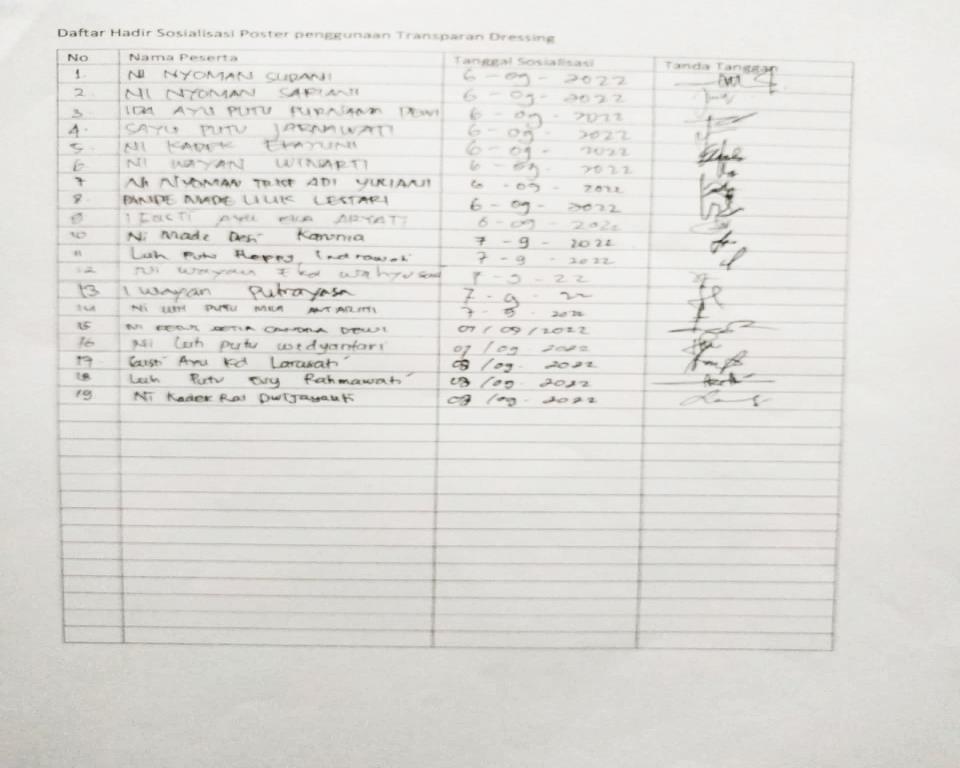 Daftar Hadir Sosialisasi Poster penggunaan Transparan Dressing
No Nama Peserta Tanggal Sosialisasi Tanda Tanggan
1. NI NYOMAN SUDANI 6 - 09 - 2022
2. NI NYOMAN SARIANI 6 - 09 - 2022
3. IDA AYU PUTU PURNAMA DEWI 6 - 09 - 2022
4. SAYU PUTU JARNAWATI 6 - 09 - 2022
5. NI KADEK EKAYUNI 6 - 09 - 2022
6 NI WAYAN WINARTI 6 - 09 - 2022
7 NI NYOMAN TRISF ADI YULIANI 6 - 09 - 2022
8. PANDE MADE LILIK LESTARI 6 - 09 - 2022
9 AYU ARYATI 6 - 09 - 2022
10 Ni Made Desi Karunia 7 - 9 - 2022
11 Luh Putu Heppy Indrawati 7 - 9 - 2022
12 Ni Wayan - 9 - 22
13 I Wayan Putrayasa 7 - 9 - 22
14 Ni LUH PUTU MILA 7 - 9 - 2022
15 NI DEWI 07 / 09 / 2022
16 Ni Luh Putu Widyantari 07 / 09 - 2022
17 Gusti Ayu Kd Larasati 08 / 09 - 2022
18 Luh Putu Evy Rahmawati 08 / 09 - 2022
19 Ni Kadek Rai Dwijayanti 08 / 09 - 2022